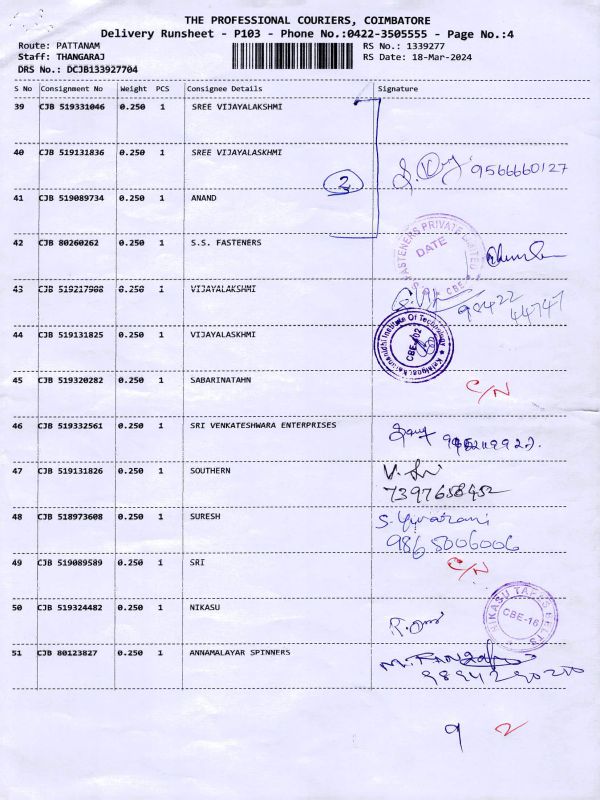 THE PROFESSIONAL COURIERS, COIMBATORE
Delivery Runsheet - P103 - Phone No.:0422-3505555 - Page No.:4
Route: PATTANAM RS No.: 1339277
Staff: THANGARAJ RS Date: 18-Mar-2024
DRS No.: DCJB133927704
S No Consignment No Weight PCS Consignee Details Signature
39 CJB 519331046 0.250 1 SREE VIJAYALAKSHMI
40 CJB 519131836 0.250 1 SREE VIJAYALASKHMI
9566660127
2
41 CJB 519089734 0.250 1 ANAND
FASTENERS PRIVATE LIMITED
DATE
CBE
42 CJB 80260262 0.250 1 S.S. FASTENERS
43 CJB 519217908 0.250 1 VIJAYALAKSHMI
98422
44747
Kalaignar Karunanidhi Institute Of Technology
CBE-402
44 CJB 519131825 0.250 1 VIJAYALAKHMI
45 CJB 519320282 0.250 1 SABARINATAHN
C/N
46 CJB 519332561 0.250 1 SRI VENKATESHWARA ENTERPRISES
47 CJB 519131826 0.250 1 SOUTHERN
7397658452
48 CJB 518973608 0.250 1 SURESH
S. Yuvarani
9865006006
49 CJB 519089589 0.250 1 SRI
C/N
50 CJB 519324482 0.250 1 NIKASU
NIKASU TAPES BELTS
CBE-16
51 CJB 80123827 0.250 1 ANNAMALAYAR SPINNERS
9894290200
9 2